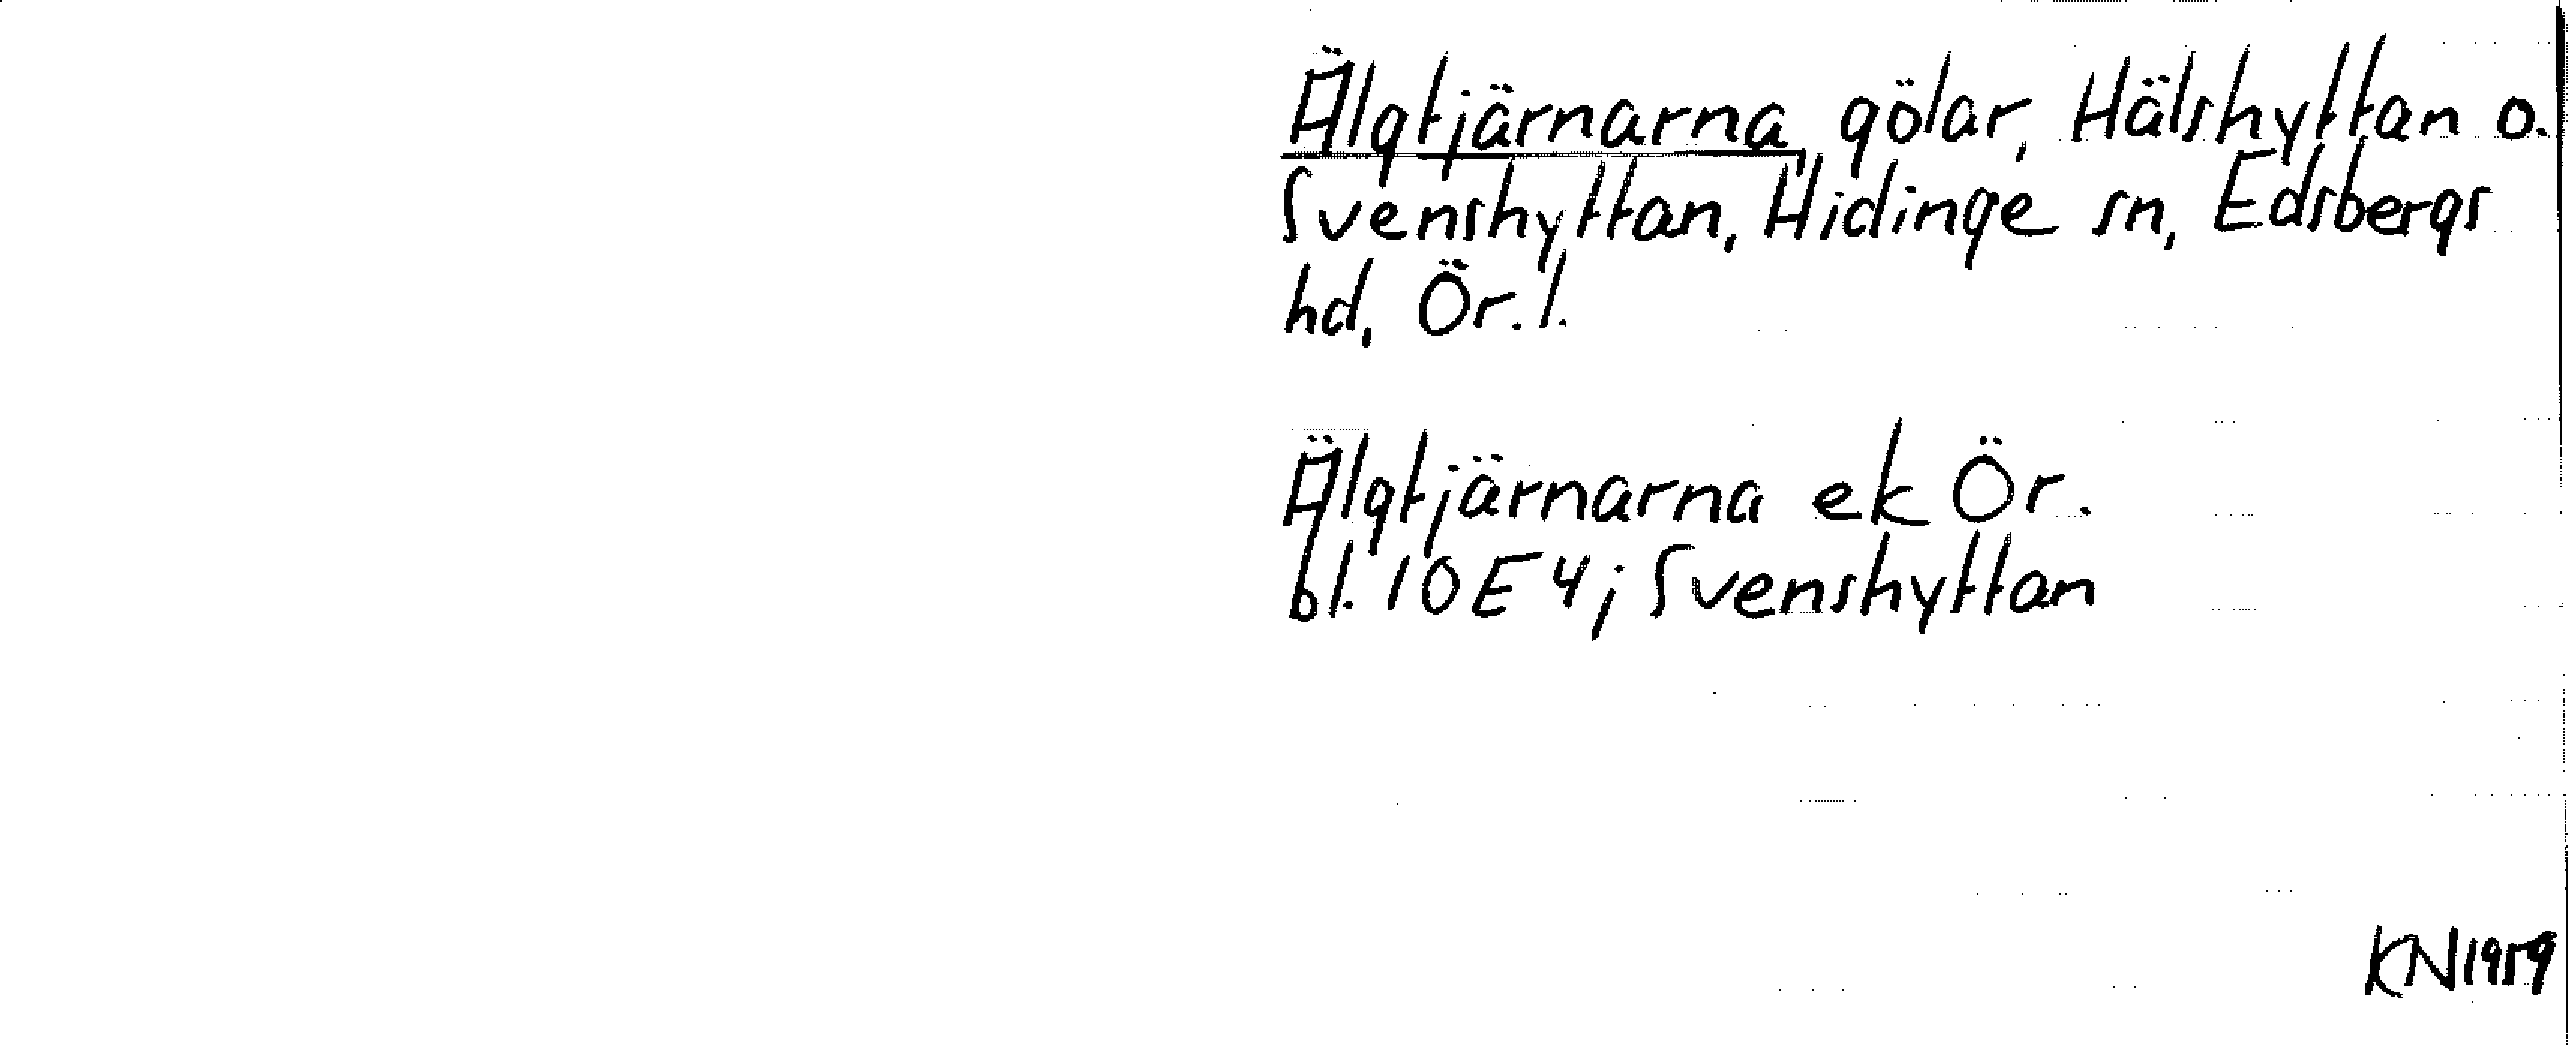 Älgtjärnarna, gölar, Hälshyttan o.
Svenshyttan, Hidinge sn, Edsbergs
hd, Ör. l.
Älgtjärnarna ek Ör.
bl. 10E4; Svenshyttan
KN1959